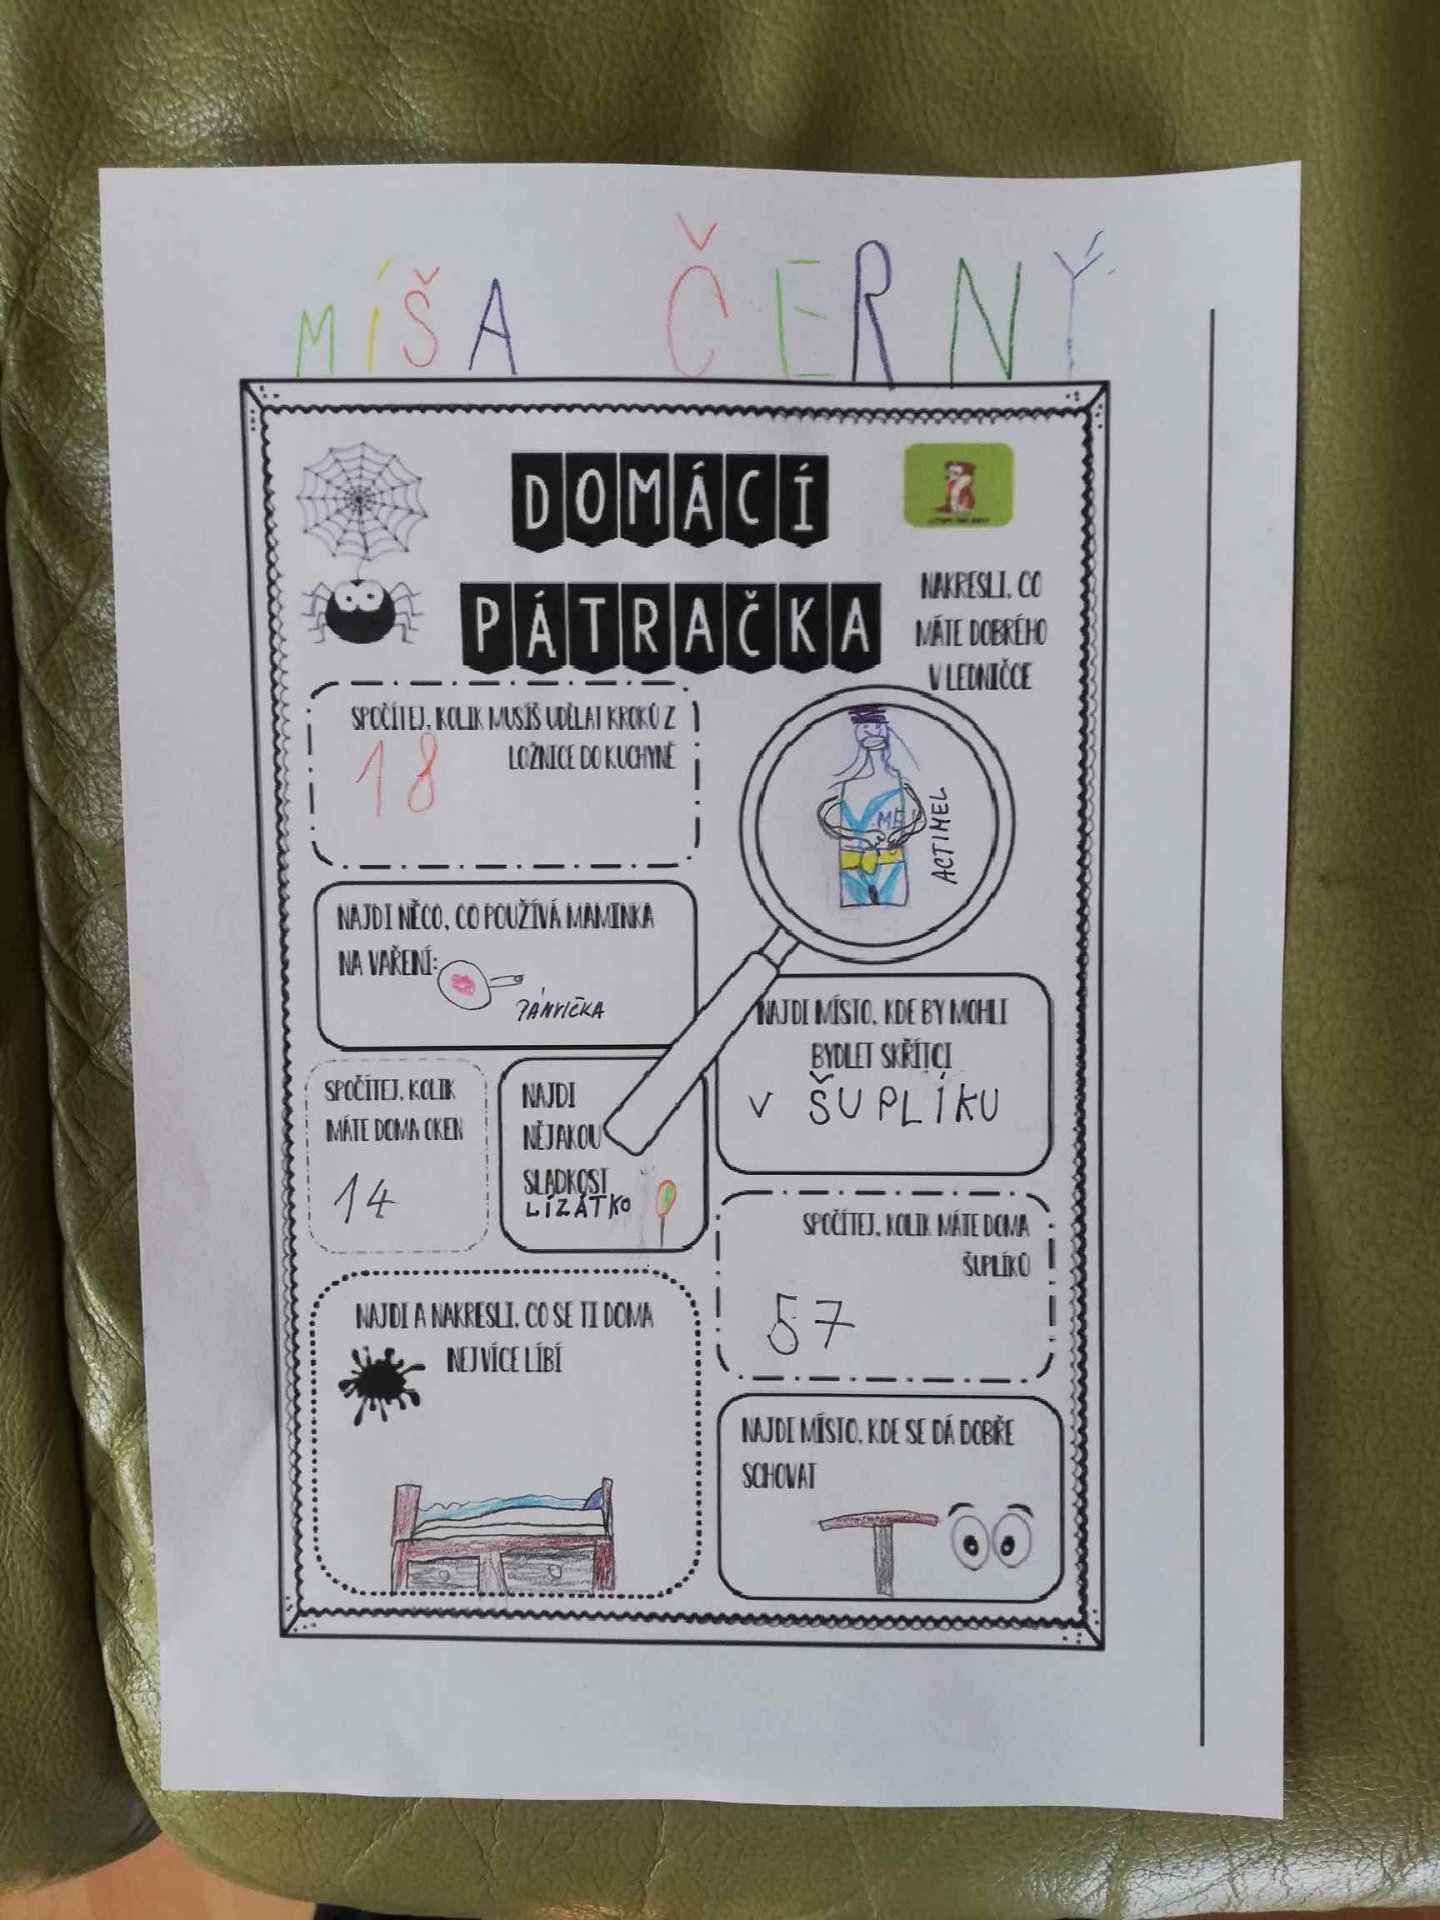 MÍŠA ČERNÝ
DOMÁCÍ
PÁTRAČKA
NAKRESLI, CO
MÁTE DOBRÉHO
V LEDNIČCE
SPOČÍTEJ, KOLIK MUSÍŠ UDĚLAT KROKŮ Z
LOŽNICE DO KUCHYNĚ
18
ACTIMEL
NAJDI NĚCO, CO POUŽÍVÁ MAMINKA
NA VAŘENÍ:
PÁNVIČKA
NAJDI MÍSTO, KDE BY MOHLI
BYDLET SKŘÍTCI
V ŠUPLÍKU
SPOČÍTEJ, KOLIK
MÁTE DOMA OKEN
14
NAJDI
NĚJAKOU
SLADKOST
LÍZÁTKO
SPOČÍTEJ, KOLIK MÁTE DOMA
ŠUPLÍKŮ
57
NAJDI A NAKRESLI, CO SE TI DOMA
NEJVÍCE LÍBÍ
NAJDI MÍSTO, KDE SE DÁ DOBŘE
SCHOVAT